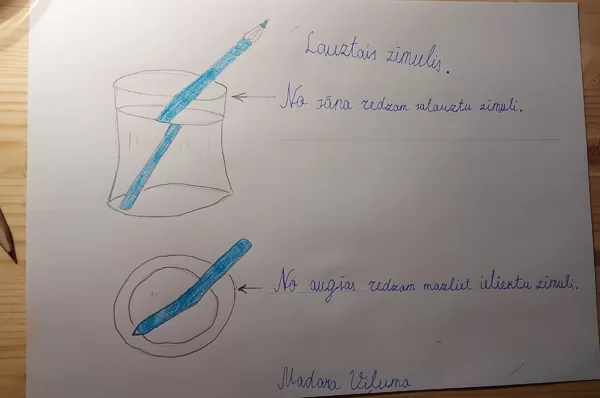 Lauztais zīmulis.
No sāna redzam salauztu zīmuli.
No augšas redzam mazliet ieliektu zīmuli.
Madara Viļuma